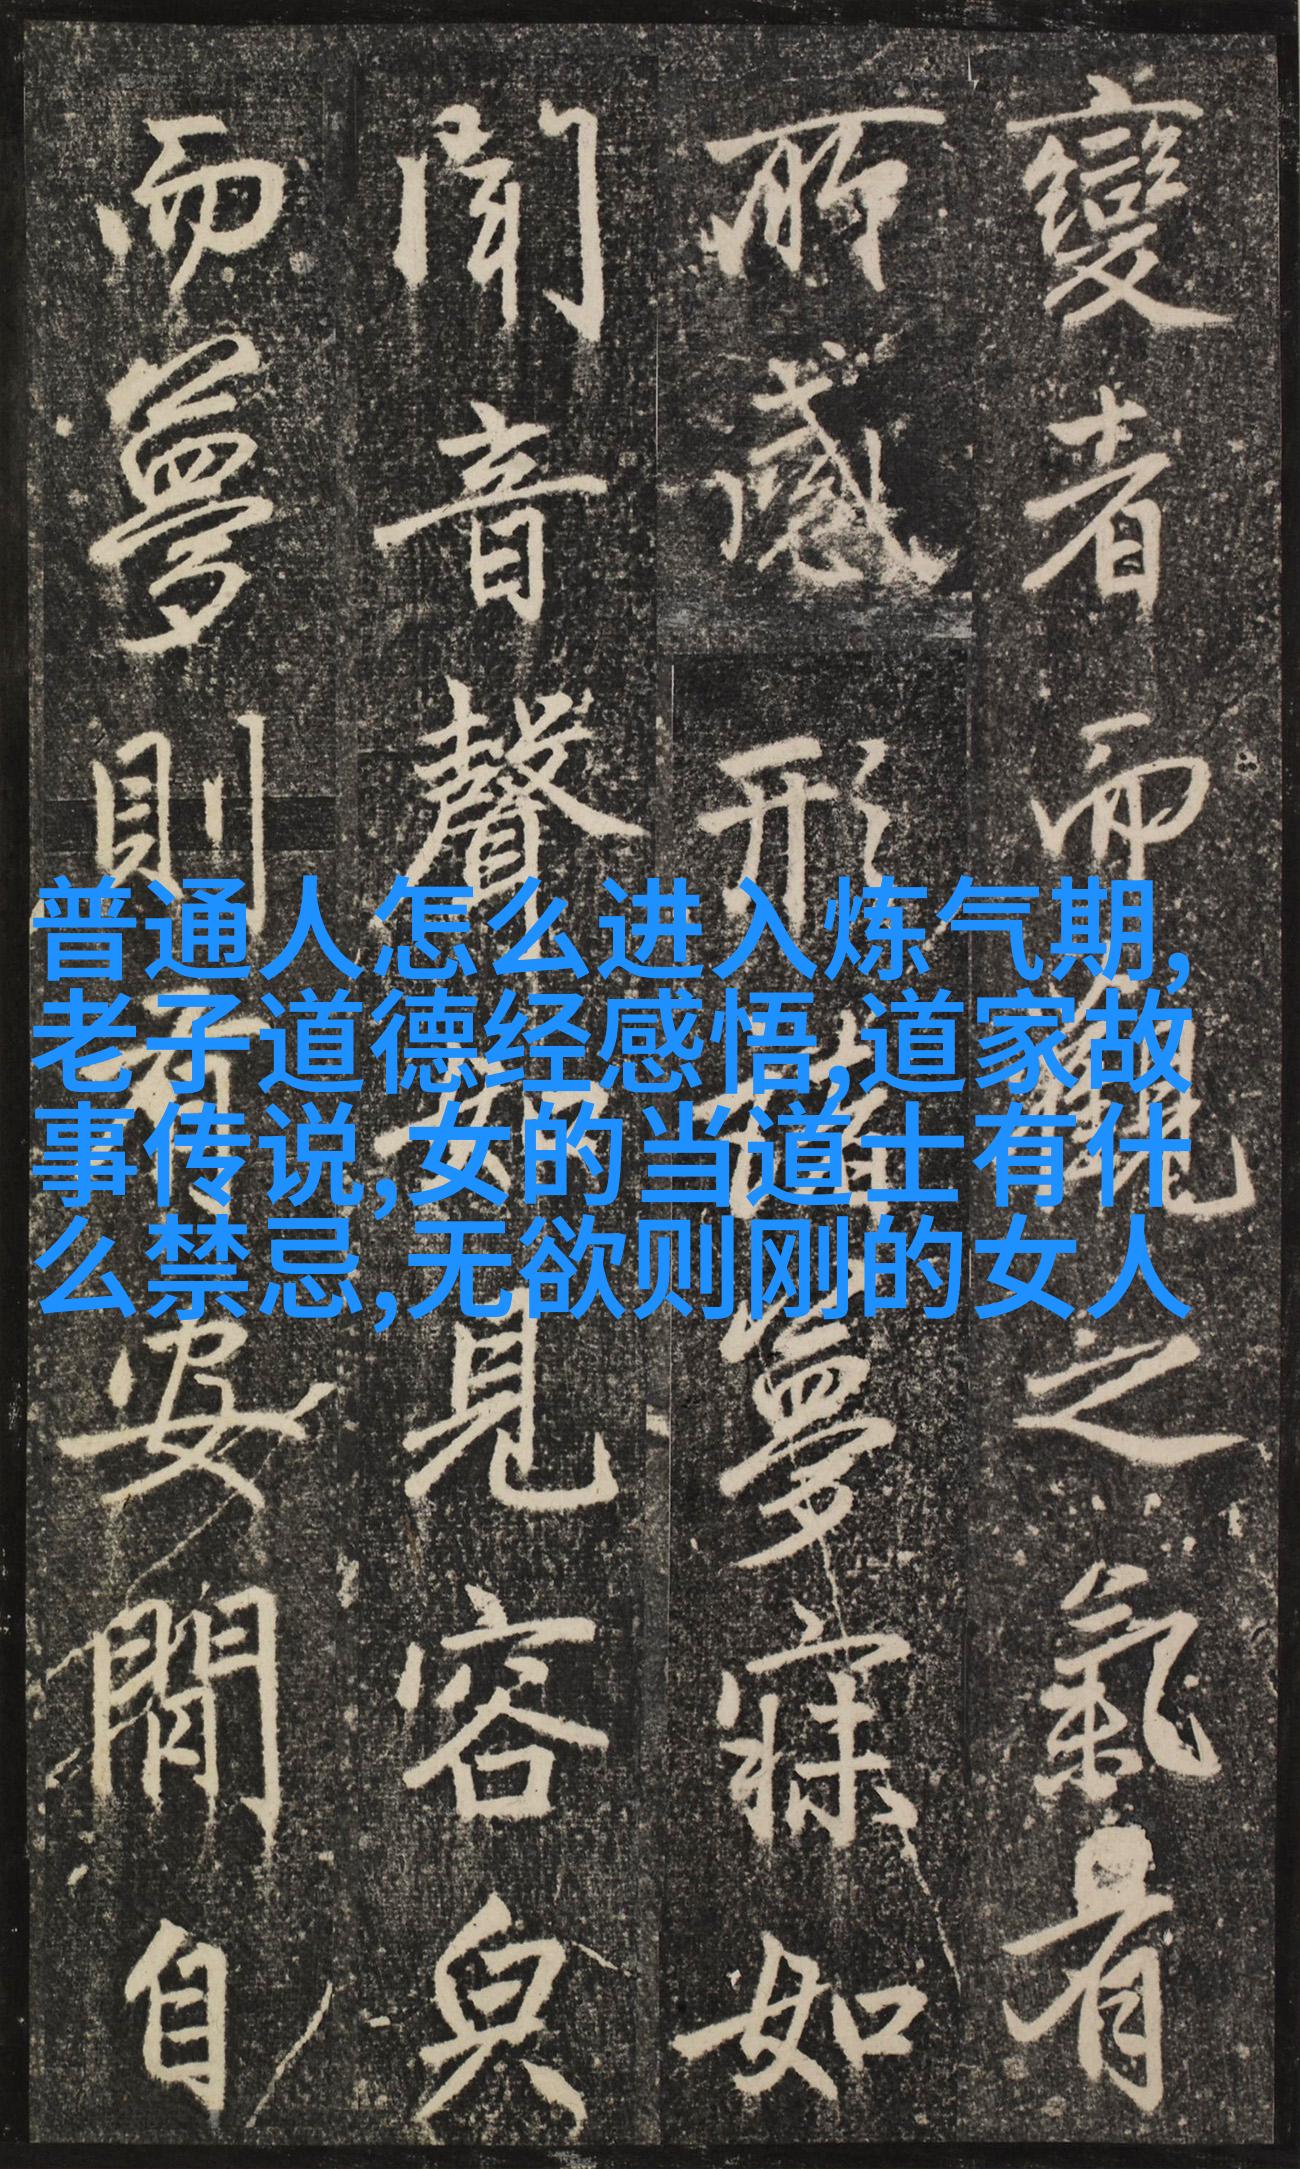 變者而觀之氣有
所感形諸夢寐如
聞音聲如見容皃
而夢則有安閒自
普通人怎么进入炼气期,
老子道德经感悟,道家故
事传说,女的当道士有什
么禁忌,无欲则刚的女人